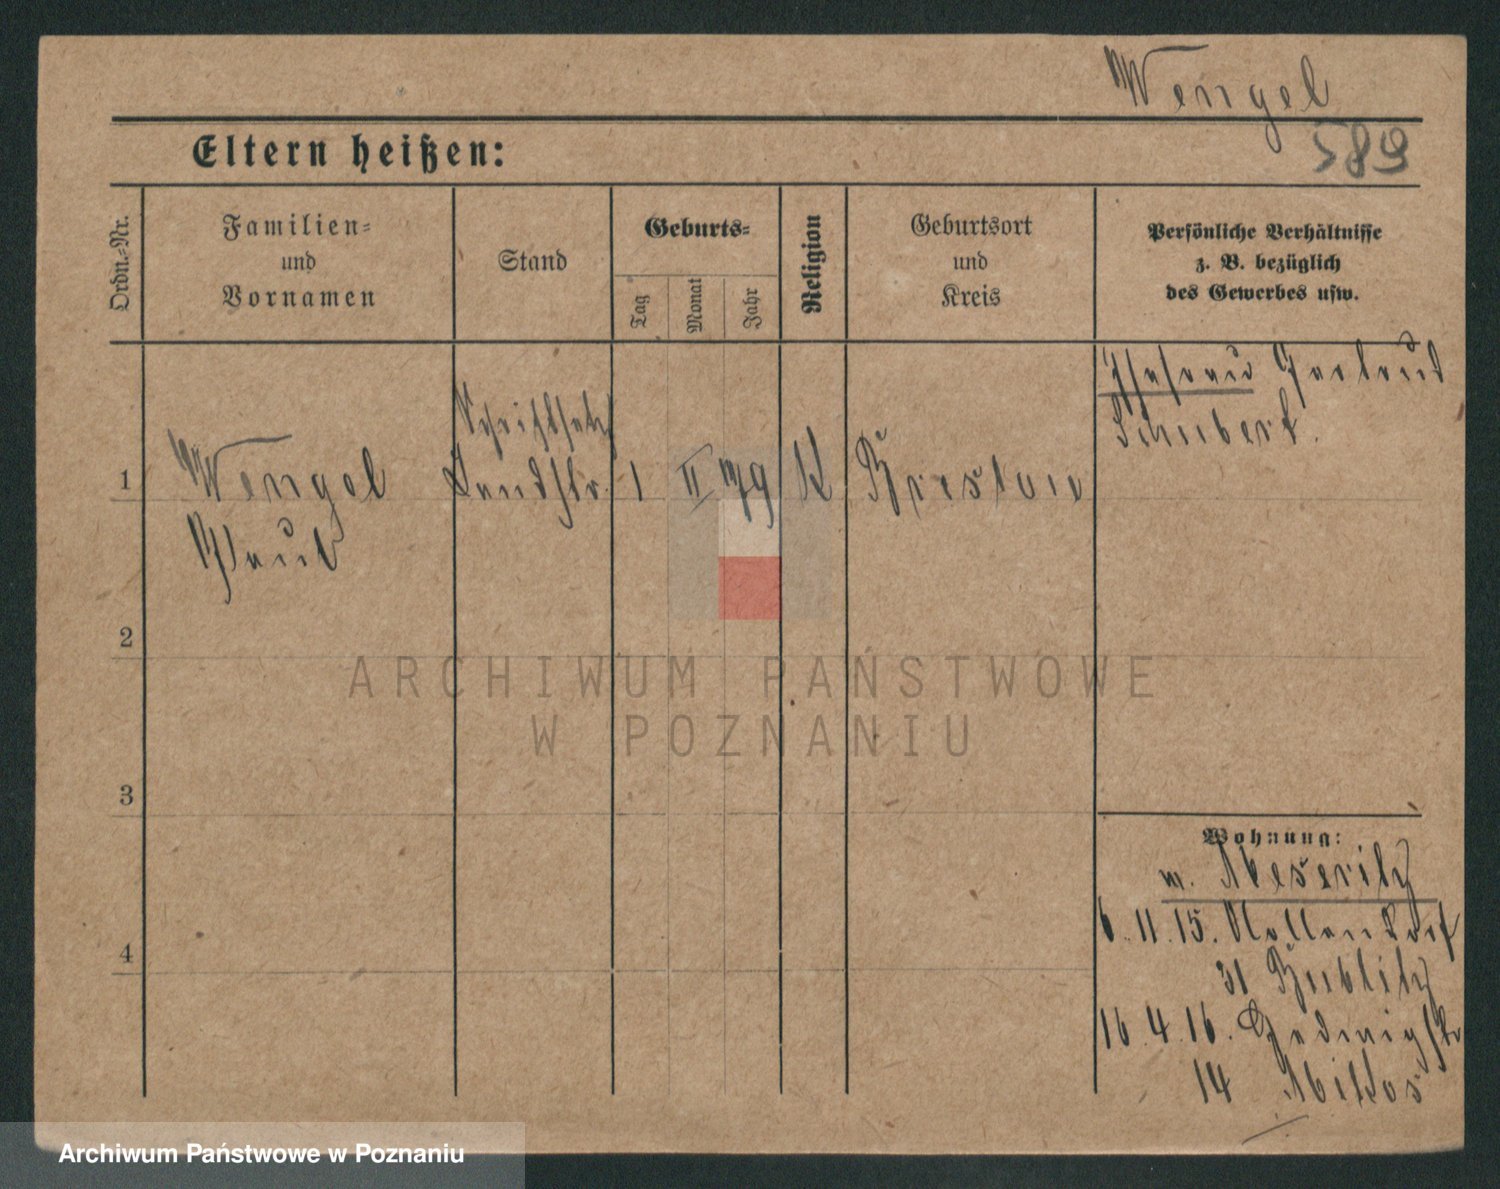 Wengel
589
Eltern heißen:
Ordn.-Nr.
Familien-
und
Vornamen
Stand
Geburts-
Tag
Monat
Jahr
Religion
Geburtsort
und
Kreis
Persönliche Verhältnisse
z. B. bezüglich
des Gewerbes usw.
1
Wengel
Paul
Schriftsetz
Landstr.
1
II
79
K
Breslau
Ehefrau Gertrud
Schubert.
2
3
4
Wohnung:
v. Meseritz
6.11.15. Nollendorf
31
16.4.16. Hedwigstr
14
ARCHIWUM PAŃSTWOWE
W POZNANIU
Archiwum Państwowe w Poznaniu